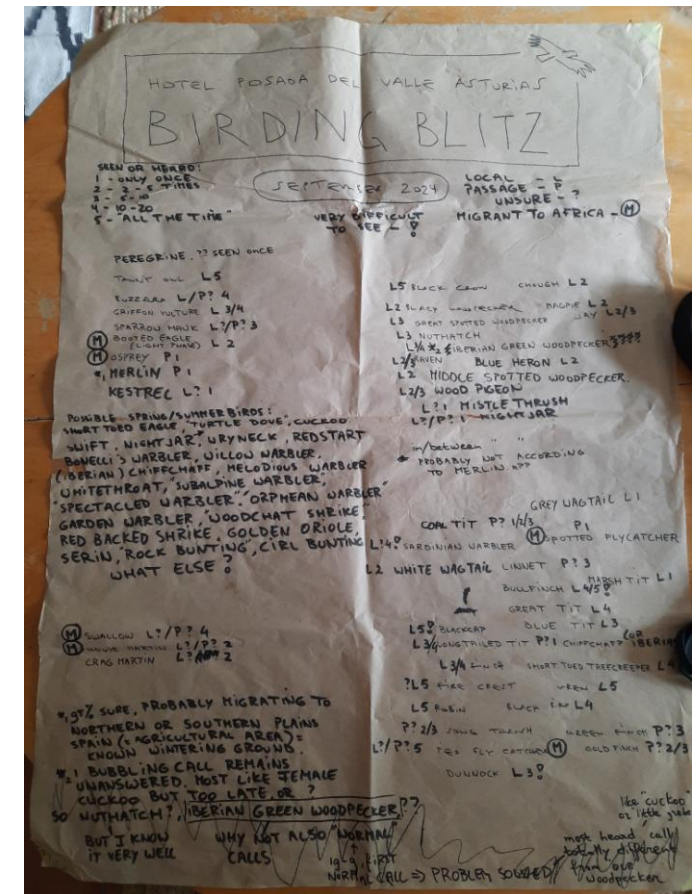 HOTEL POSADA DEL VALLE ASTURIAS
BIRDING BLITZ
SEPTEMBER 2024
SEEN OR HEARD:
1 - ONLY ONCE
2 - 2-5 TIMES
3 - 5-10
4 - 10-20
5 - "ALL THE TIME"
VERY DIFFICULT
TO SEE - !
LOCAL - L
PASSAGE - P
UNSURE - ?
MIGRANT TO AFRICA - M
PEREGRINE. ?? SEEN ONCE
TAWNY OWL L5
BUZZARD L/P? 4
GRIFFON VULTURE L 3/4
SPARROW HAWK L?/P? 3
M BOOTED EAGLE
(LIGHT PHASE) L 2
M OSPREY P1
*1 MERLIN P1
KESTREL L? 1
POSSIBLE SPRING/SUMMER BIRDS:
SHORT TOED EAGLE, "TURTLE DOVE", CUCKOO,
SWIFT, NIGHTJAR, WRYNECK, REDSTART
BONELLI'S WARBLER, WILLOW WARBLER,
(IBERIAN) CHIFFCHAFF, MELODIOUS WARBLER
WHITETHROAT, "SUBALPINE WARBLER",
"SPECTACLED WARBLER", "ORPHEAN WARBLER"
GARDEN WARBLER, "WOODCHAT SHRIKE",
RED BACKED SHRIKE, GOLDEN ORIOLE,
SERIN, "ROCK BUNTING", CIRL BUNTING
WHAT ELSE?
M SWALLOW L?/P? 4
M HOUSE MARTIN L?/P? 2
CRAG MARTIN L? 2
*1 SURE, PROBABLY MIGRATING TO
NORTHERN OR SOUTHERN PLAINS
SPAIN (= AGRICULTURAL AREA) =
KNOWN WINTERING GROUND.
*2 1 BUBBLING CALL REMAINS
UNANSWERED. MOST LIKE FEMALE
CUCKOO BUT TOO LATE, OR?
SO NUTHATCH?, IBERIAN GREEN WOODPECKER??
BUT I KNOW
IT VERY WELL
WHY NOT ALSO "NORMAL"
CALLS
FIRST
NORMAL CALL => PROBLEM SOLVED
L5 BLACK CROW CHOUGH L2
L2 BLACK WOODPECKER MAGPIE L2
L3 GREAT SPOTTED WOODPECKER JAY L2/3
L3 NUTHATCH
L1/4 *2 IBERIAN GREEN WOODPECKER
L2/3 RAVEN BLUE HERON L2
L2 MIDDLE SPOTTED WOODPECKER.
L2/3 WOOD PIGEON
L?1 MISTLE THRUSH
L?/P?1 NIGHTJAR
in/between " "
* PROBABLY NOT ACCORDING
TO MERLIN.
GREY WAGTAIL L1
COAL TIT P?
P1
M SPOTTED FLYCATCHER
SARDINIAN WARBLER
L2 WHITE WAGTAIL LINNET P?3
MARSH TIT L1
BULLFINCH L4/5!
GREAT TIT L4
L5! BLACKCAP BLUE TIT L3
L3/4 LONGTAILED TIT P?1 CHIFFCHAFF (OR IBERIAN
L3/4 SHORT TOED TREECREEPER L4
?L5 FIRE CREST WREN L5
L5 ROBIN L4
P?2/3 SONG THRUSH GREEN FINCH P?3
L?/P?5 PIED FLY CATCHER M GOLDFINCH P?2/3
DUNNOCK L3!
like "cuckoo"
or little grebe
most heard call
totally different
from our
woodpecker